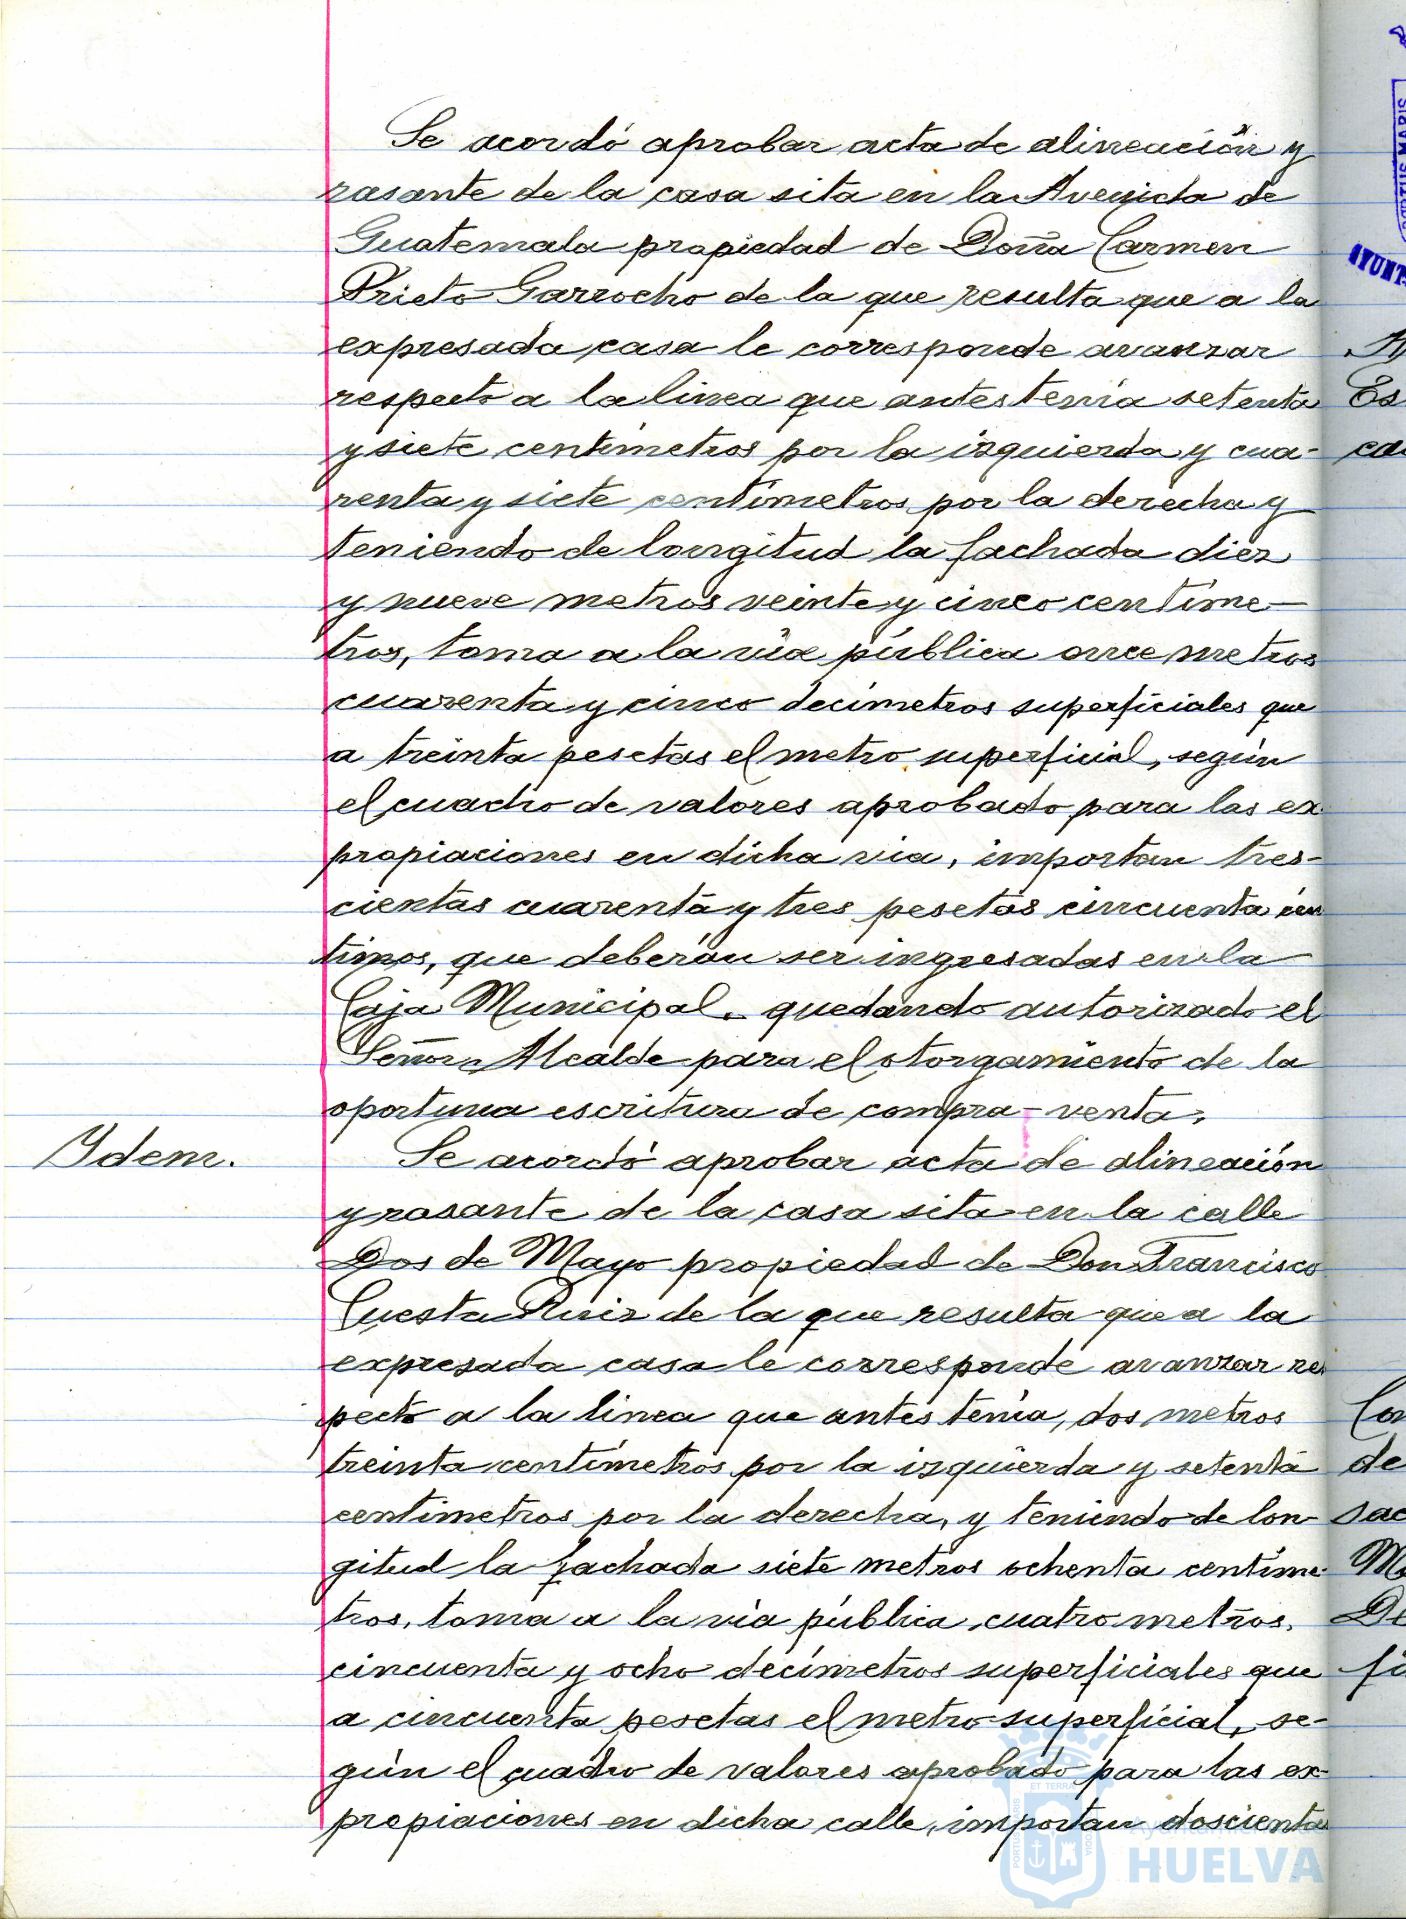 Se acordó aprobar acta de alineación y
rasante de la casa sita en la Avenida de
Guatemala propiedad de Doña Carmen
Prieto Garrocho de la que resulta que a la
expresada casa le corresponde avanzar
respecto a la linea que antes tenía setenta
y siete centímetros por la izquierda y cua-
renta y siete centímetros por la derecha y
teniendo de longitud la fachada diez
y nueve metros veinte y cinco centíme-
tros, toma a la vía pública once metros
cuarenta y cinco decímetros superficiales que
a treinta pesetas el metro superficial, según
el cuadro de valores aprobado para las ex-
propiaciones en dicha via, importan tres-
cientas cuarenta y tres pesetas cincuenta cén
timos, que deberán ser ingresadas en la
Caja Municipal, quedando autorizado el
Señor Alcalde para el otorgamiento de la
oportuna escritura de compra-venta.
Ydem.
Se acordó aprobar acta de alineación
y rasante de la casa sita en la calle
Dos de Mayo propiedad de Don Francisco
Cuesta Ruiz de la que resulta que a la
expresada casa le corresponde avanzar res
pecto a la linea que antes tenía, dos metros
treinta centímetros por la izquierda y setenta
centímetros por la derecha, y teniendo de lon-
gitud la fachada siete metros ochenta centíme-
tros, toma a la vía pública cuatro metros,
cincuenta y ocho decímetros superficiales que
a cincuenta pesetas el metro superficial, se-
gún el cuadro de valores aprobado para las ex-
propiaciones en dicha calle, importan doscientas
Ayuntamiento de
HUELVA